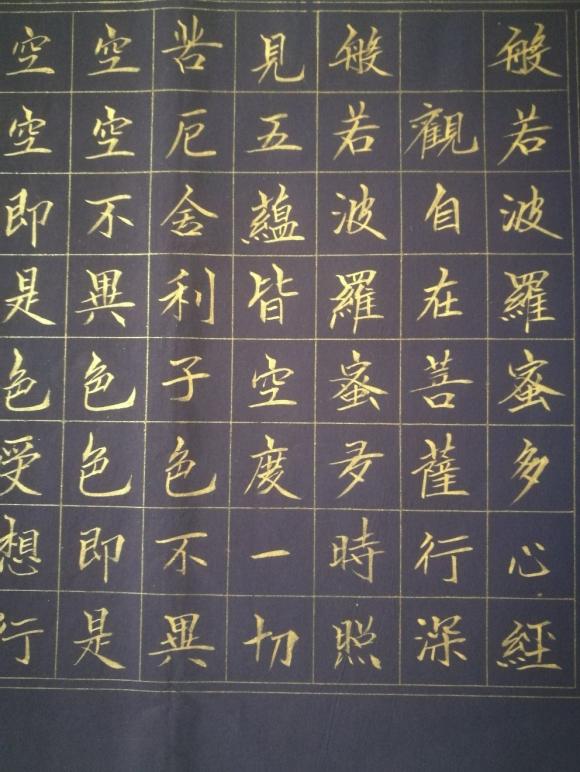 般若波羅蜜多心經
觀自在菩薩行深
般若波羅蜜多時照
見五蘊皆空度一切
苦厄舍利子色不異
空空不異色色即是
空空即是色受想行